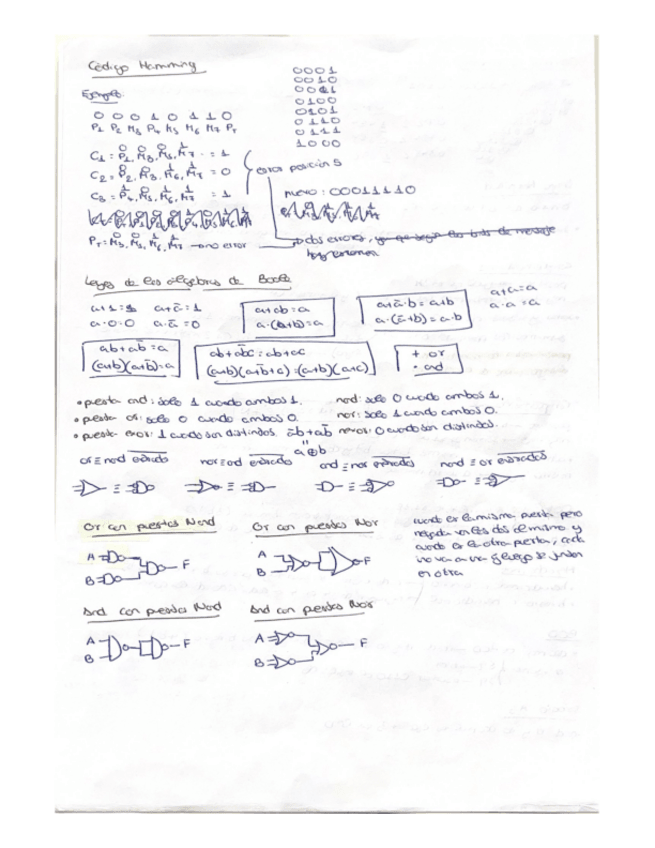 Código Hamming
Ejemplo:
0 0 0 1 0 1 1 0
P1 P2 M3 P4 M5 M6 M7 PT
0001
0010
0011
0100
0101
0110
0111
1000
C1 = P1, M3, M5, M7 = 1
C2 = P2, M3, M6, M7 = 0
C3 = P4, M5, M6, M7 = 1
error posición 5
nuevo: 00011110
PT = M3, M5, M6, M7 → no error
→ dos errores, ya que según los bits de mensaje
hay errores
Leyes de las álgebras de Boole
a+1=1 a+ā=1
a·0=0 a·ā=0
a+ab=a
a·(a+b)=a
a+ā·b=a+b
a·(ā+b)=a·b
a+a=a
a·a=a
ab+ab̄=a
(a+b)(a+b̄)=a
ab+ab̄c=ab+ac
(a+b)(a+b̄+c)=(a+b)(a+c)
+ or
· and
• puerta and: solo 1 cuando ambos 1. nand: solo 0 cuando ambos 1.
• puerta or: solo 0 cuando ambos 0. nor: solo 1 cuando ambos 0.
• puerta exor: 1 cuando son distintos. āb+ab̄ nexor: 0 cuando son distintos.
a⊕b
or ≡ nand entrada nor ≡ and entrada and ≡ nor entradas nand ≡ or entradas
Or con puertas Nand
A
B
F
Or con puertas Nor
A
B
F
cuando es la misma puerta pero
negada
cuando es la otra puerta, cada
una va a una y luego se juntan
en otra
And con puertas Nand
A
B
F
And con puertas Nor
A
B
F